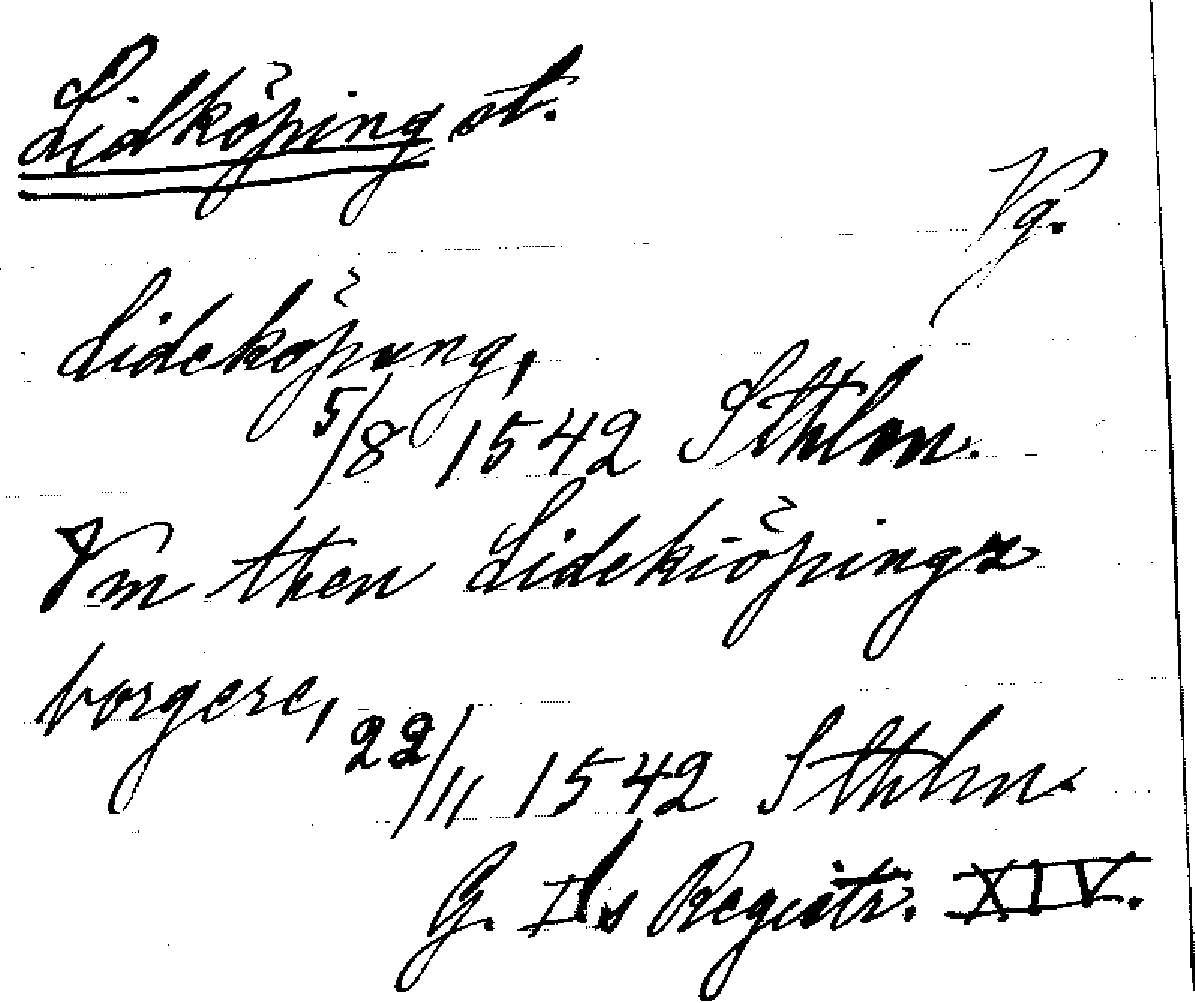 Lidköping st.
Vg.
Lideköpung,
5/8 1542 Sthlm.
Vm then Lidekiöpings
borgere,
22/11 1542 Sthlm.
G. I:s Registr. XIV.